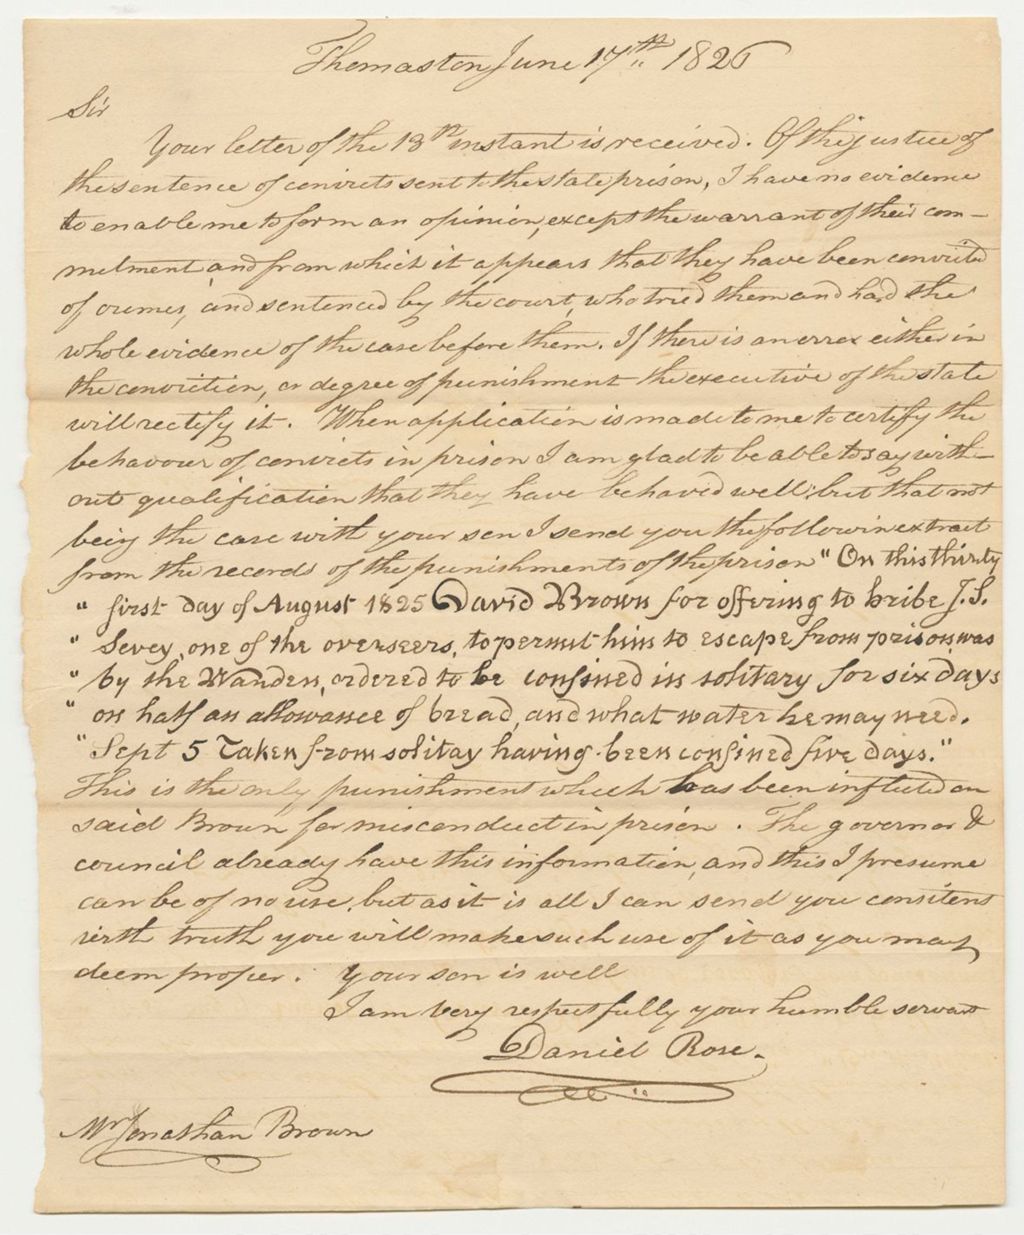 Thomaston June 17th 1826
Sir
Your letter of the 13th instant is received. Of the justice of
the sentence of convicts sent to the state prison, I have no evidence
to enable me to form an opinion, except the warrant of their com-
mitment and from which it appears that they have been convicted
of crimes, and sentenced by the court, who tried them and had the
whole evidence of the case before them. If there is an error either in
the conviction, or degree of punishment the executive of the state
will rectify it. When application is made to me to certify the
behavour of convicts in prison I am glad to be able to say with-
out qualification that they have behaved well; but that not
being the case with your son I send you the followin extract
from the records of the punishments of the prison "On this thirty
" first day of August 1825 David Brown for offering to bribe J. S.
" Sevey, one of the overseers, to permit him to escape from prison, was
" by the Warden, ordered to be confined in solitary for six days
" on half an allowance of bread, and what water he may need.
" Sept 5 Taken from solitay having been confined five days."
This is the only punishment which has been inflicted on
said Brown for misconduct in prison. The governor &
council already have this information, and this I presume
can be of no use, but as it is all I can send you consitent
with truth you will make such use of it as you may
deem proper. Your son is well
I am very respectfully your humble servant
Daniel Rose.
Mr Jonathan Brown